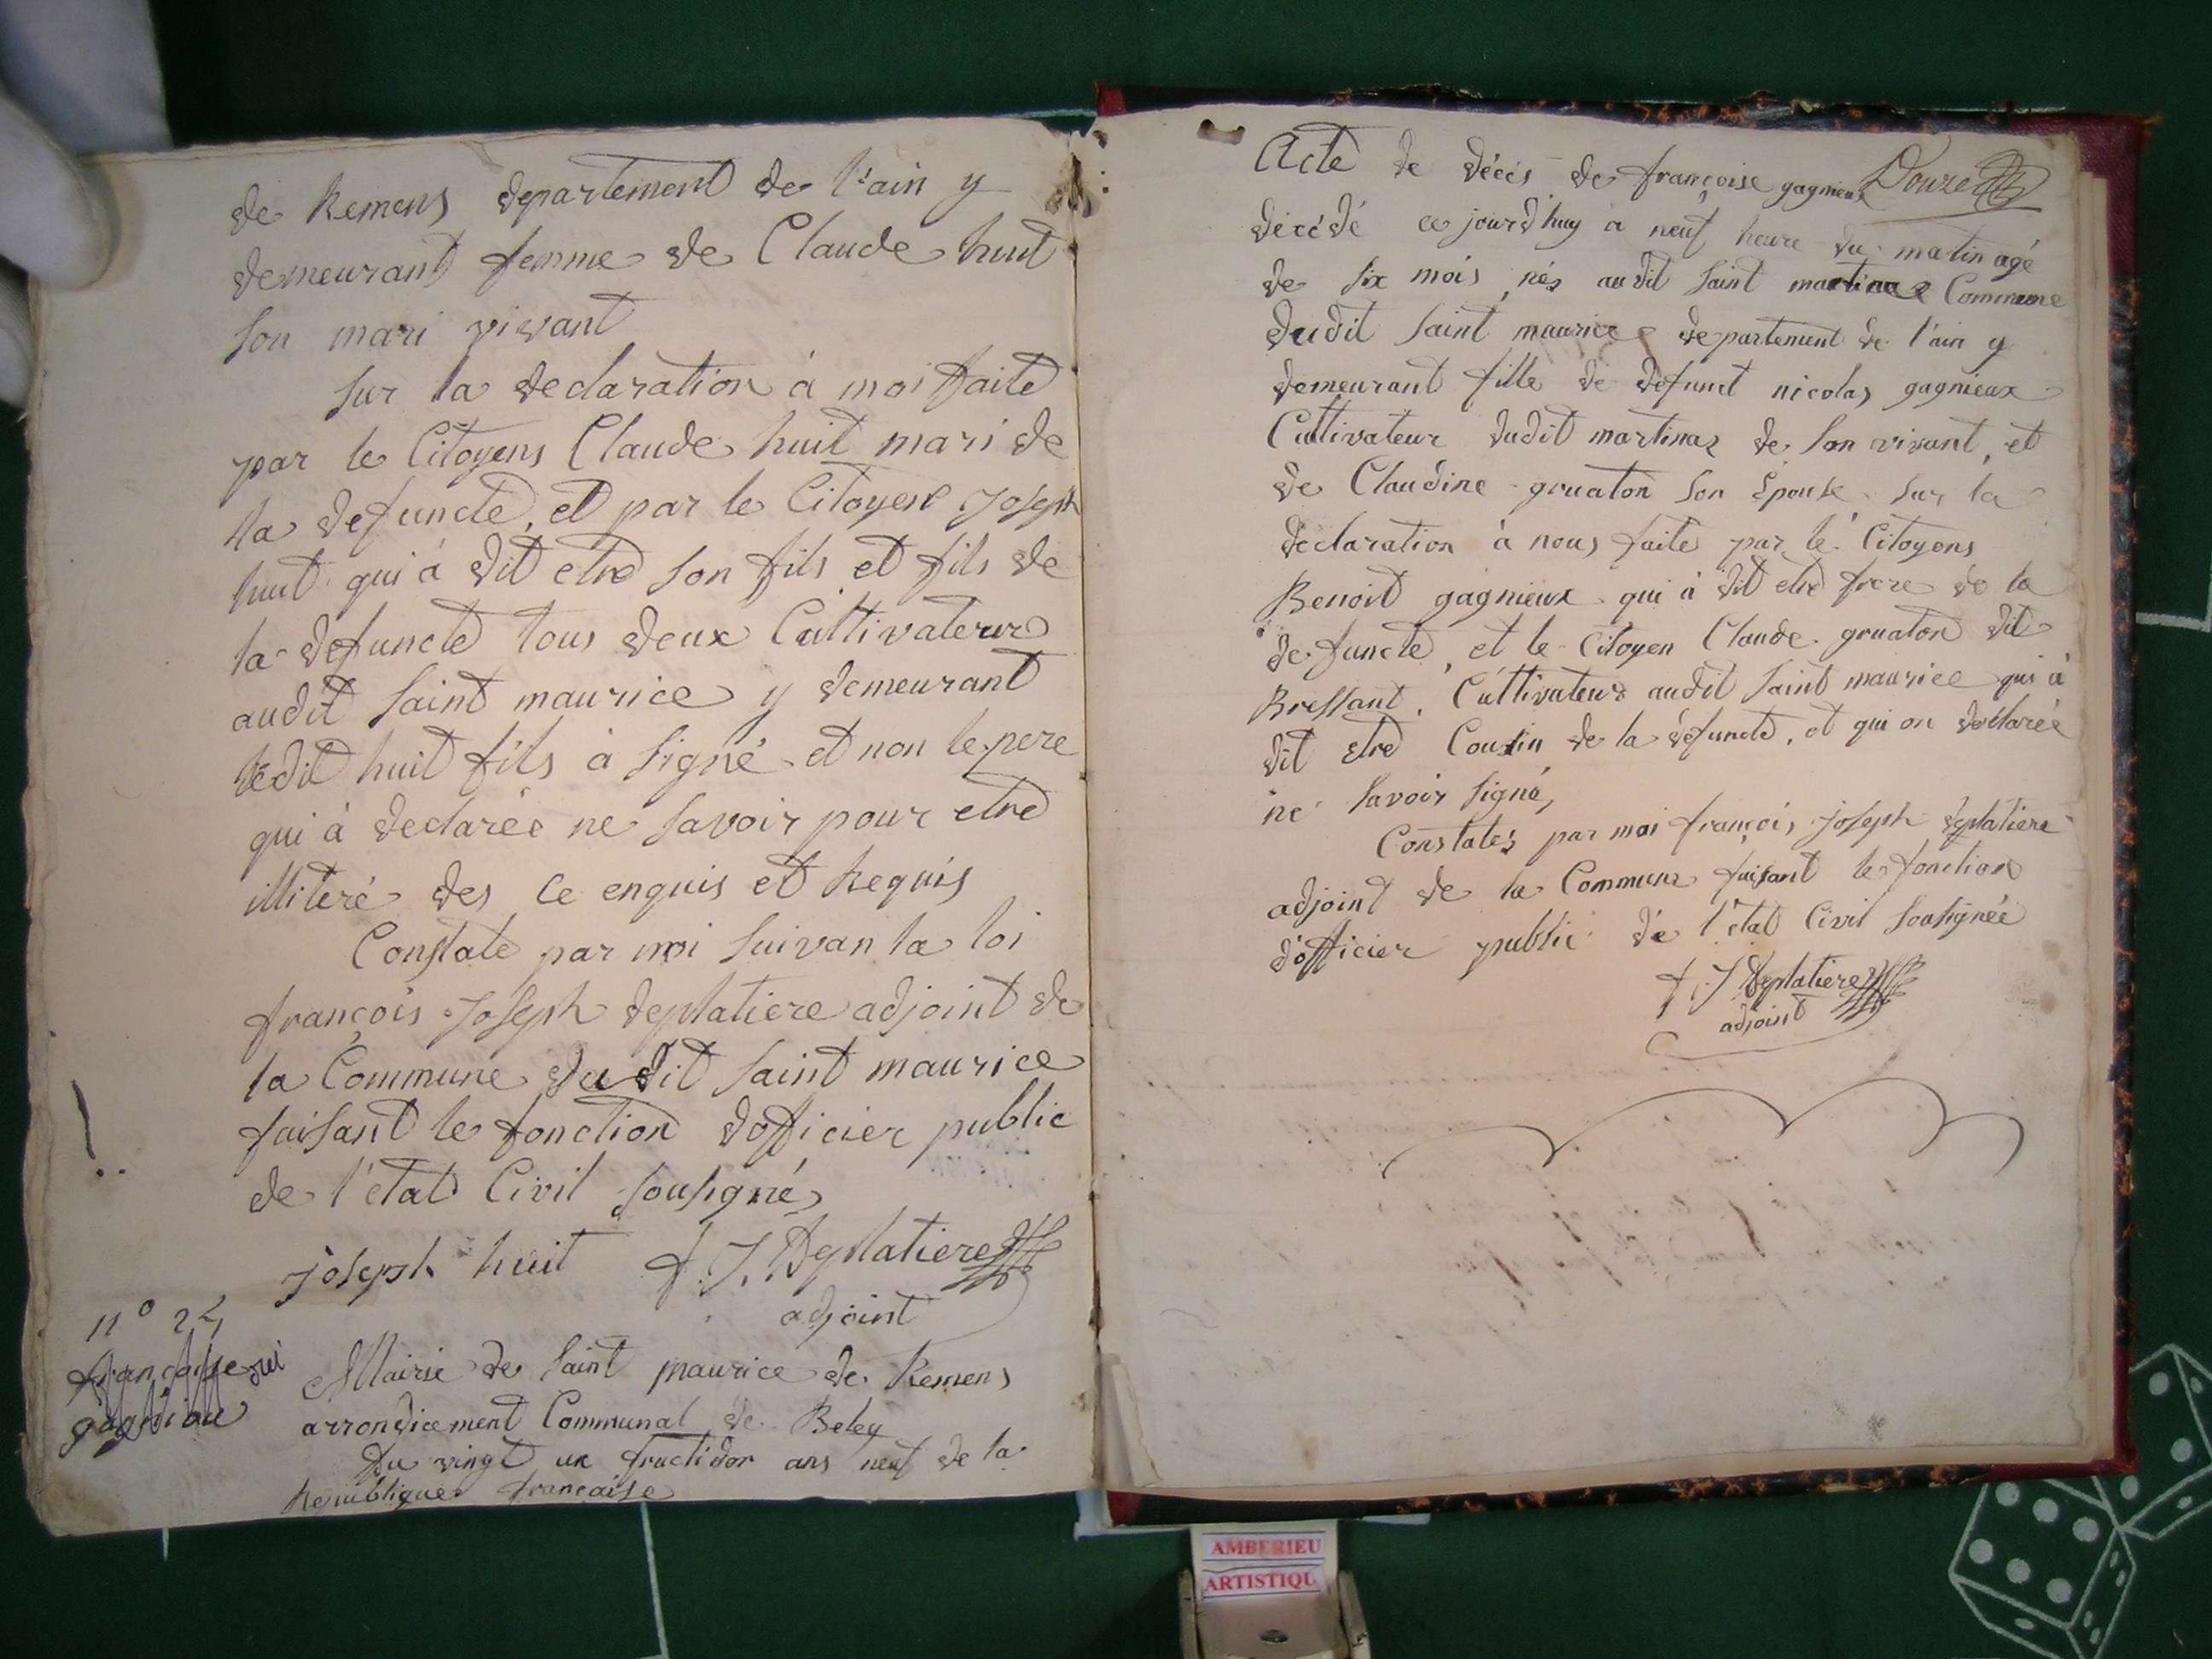 de Remens departement de l'ain y
demeurant femme de Claude huit
son mari vivant
sur la declaration à moi faite
par le Citoyens Claude huit mari de
la defuncte, et par le Citoyen Joseph
huit qui à dit etre son fils et fils de
la defuncte tous deux Cultivateur
audit saint maurice y demeurant
ledit huit fils à signé et non le pere
qui à declarée ne savoir pour etre
illiteré des ce enquis et Requis
Constate par moi suivan la loi
françois Joseph deplatiere adjoint de
la Commune dudit saint maurice
faisant le fonction dofficier public
de l'état Civil sousigné,
joseph huit f. J. Deplatiere
adjoint
n° 24
françoise
gagnieux
oui
Mairie de saint maurice de Remens
arrondicement Communal de Beley
du vingt un fructidor ans neuf de la
Republique française
Acte de décès de françoise gagnieux Douze
décédé ce jourd'huy à neuf heure du matin agé
de six mois, nés audit saint martinas Commune
dudit saint maurice departement de l'ain y
demeurant fille de defunct nicolas gagnieux
Cultivateur dudit martinas de son vivant, et
de Claudine gruaton son Epouse sur la
declaration à nous faite par le Citoyens
Benoit gagnieux qui à dit etre frere de la
defuncte, et le Citoyen Claude gruaton dit
Bressant. Cultivateur audit saint maurice qui à
dit etre Cousin de la defuncte, et qui on declarée
ne savoir signé,
Constatés par moi françois joseph deplatiere
adjoint de la Commune faisant le fonction
d'officier public de l'état Civil sousignée
f. J Deplatiere
adjoint
AMBERIEU
ARTISTIQU